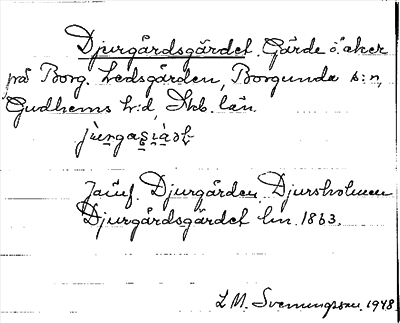 Djurgårdsgärdet. Gärde o. åker
på Borg. Ledsgården, Borgunda s:n,
Gudhems h:d Skb. län.
Jämf. Djurgården, Djursholmen
Djurgårdsgärdet lm. 1863.
L M. Svenungsson. 1948